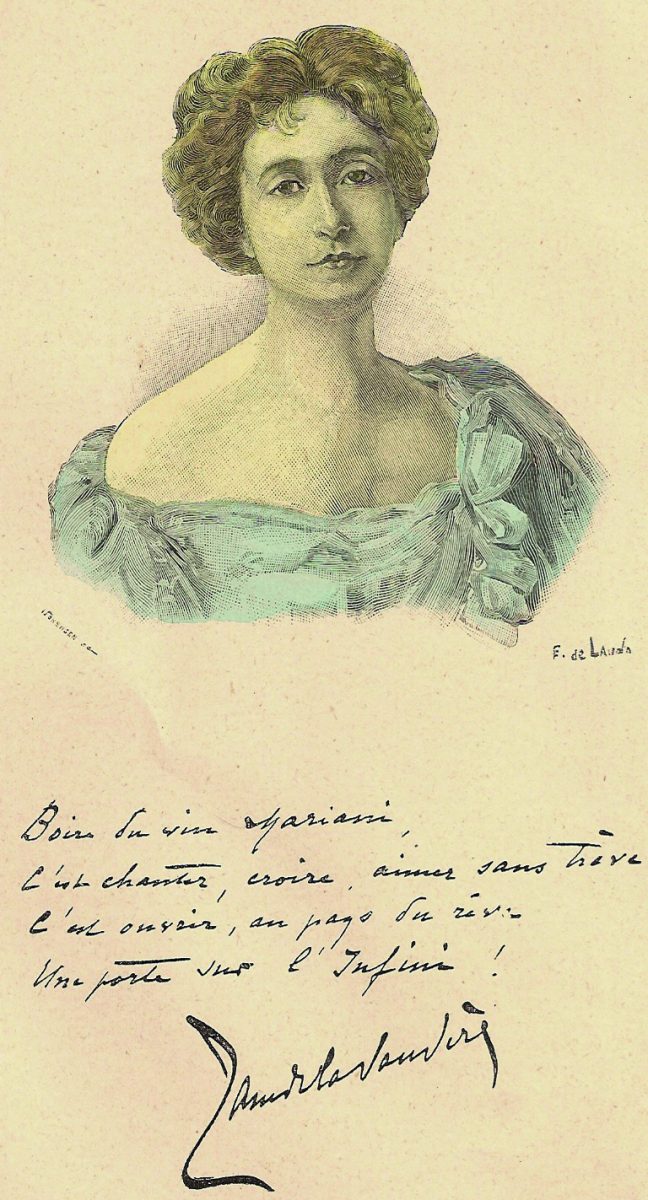 F. de
Boire du vin Mariani,
C'est chanter, croire, aimer sans trève
C'est ouvrir, au pays du rêve
Une porte sur l'Infini !
Jane de la Vaudère